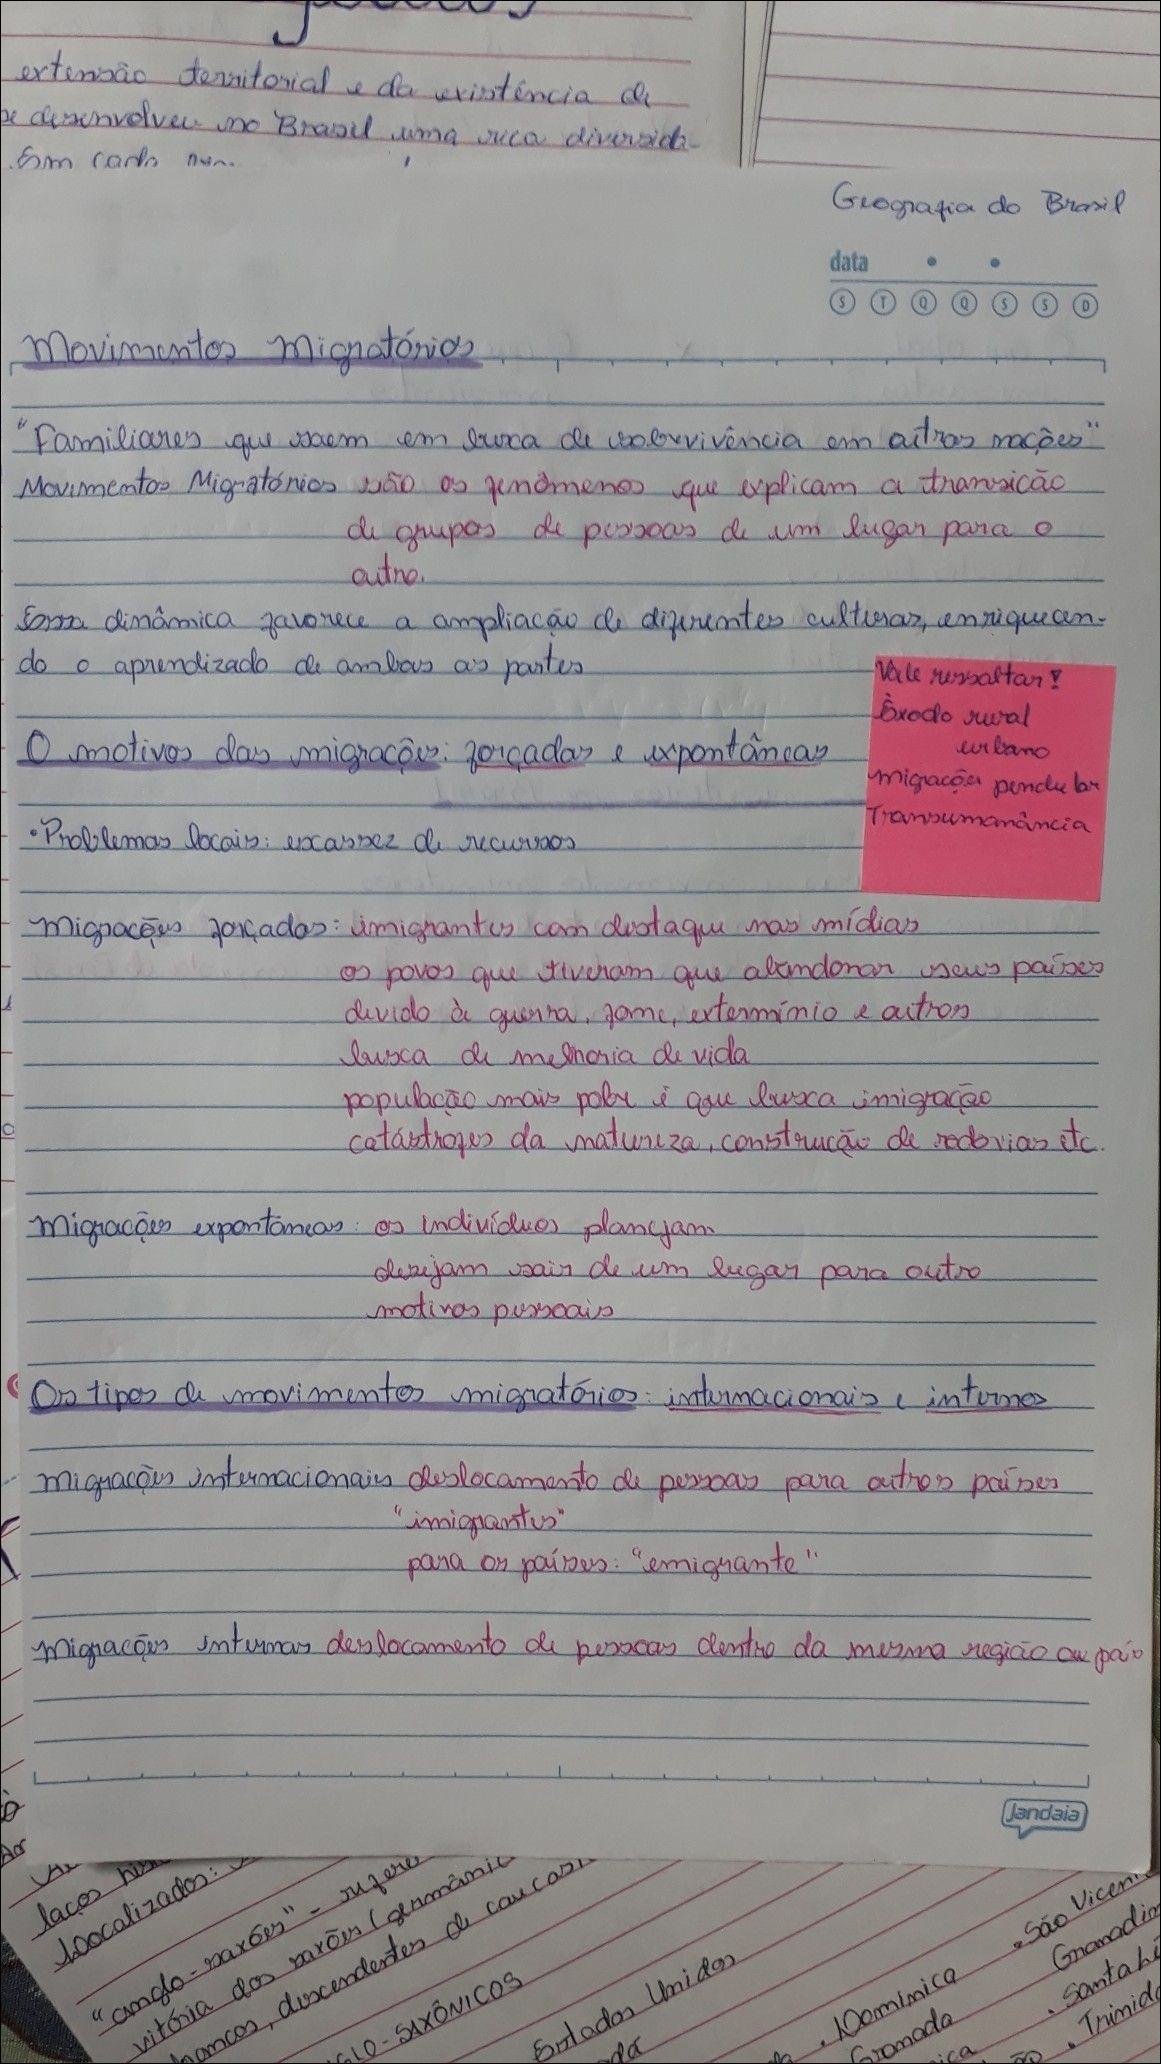 extensão territorial e da existência de
se desenvolveu no Brasil uma rica diversida-
Geografia do Brasil
data
S T Q Q S S D
Movimentos Migratórios
"Familiares que saem em busca de sobrevivência em outras nações"
Movimentos Migratórios são os fenômenos que explicam a transição
de grupos de pessoas de um lugar para o
outro.
Essa dinâmica favorece a ampliação de diferentes culturas, enriquecen-
do o aprendizado de ambas as partes
Vale ressaltar!
Êxodo rural
urbano
migrações pendular
Transumanância
O motivos das migrações: forçadas e expontâneas
•Problemas locais: escassez de recursos
Migrações forçadas: imigrantes com destaque nas mídias
os povos que tiveram que abandonar seus países
devido à guerra, fome, extermínio e outros
busca de melhoria de vida
população mais pobre é que busca imigração
catástrofes da natureza, construção de rodovias etc.
Migrações expontâneas: os indivíduos planejam
desejam sair de um lugar para outro
motivos pessoais
Os tipos de movimentos migratórios: internacionais e internos
Migrações internacionais deslocamento de pessoas para outros países
"imigrantes"
para os países: "emigrante"
Migrações internas deslocamento de pessoas dentro da mesma região ou país
Jandaia
laços
localizados:
"anglo-saxões" - refere
vitória dos saxões (germânic
brancos, descendentes de caucasi
GLO-SAXÔNICOS
Estados Unidos
. Dominica
Granada
. São Vicen
Granadin
. Santa
. Trinida